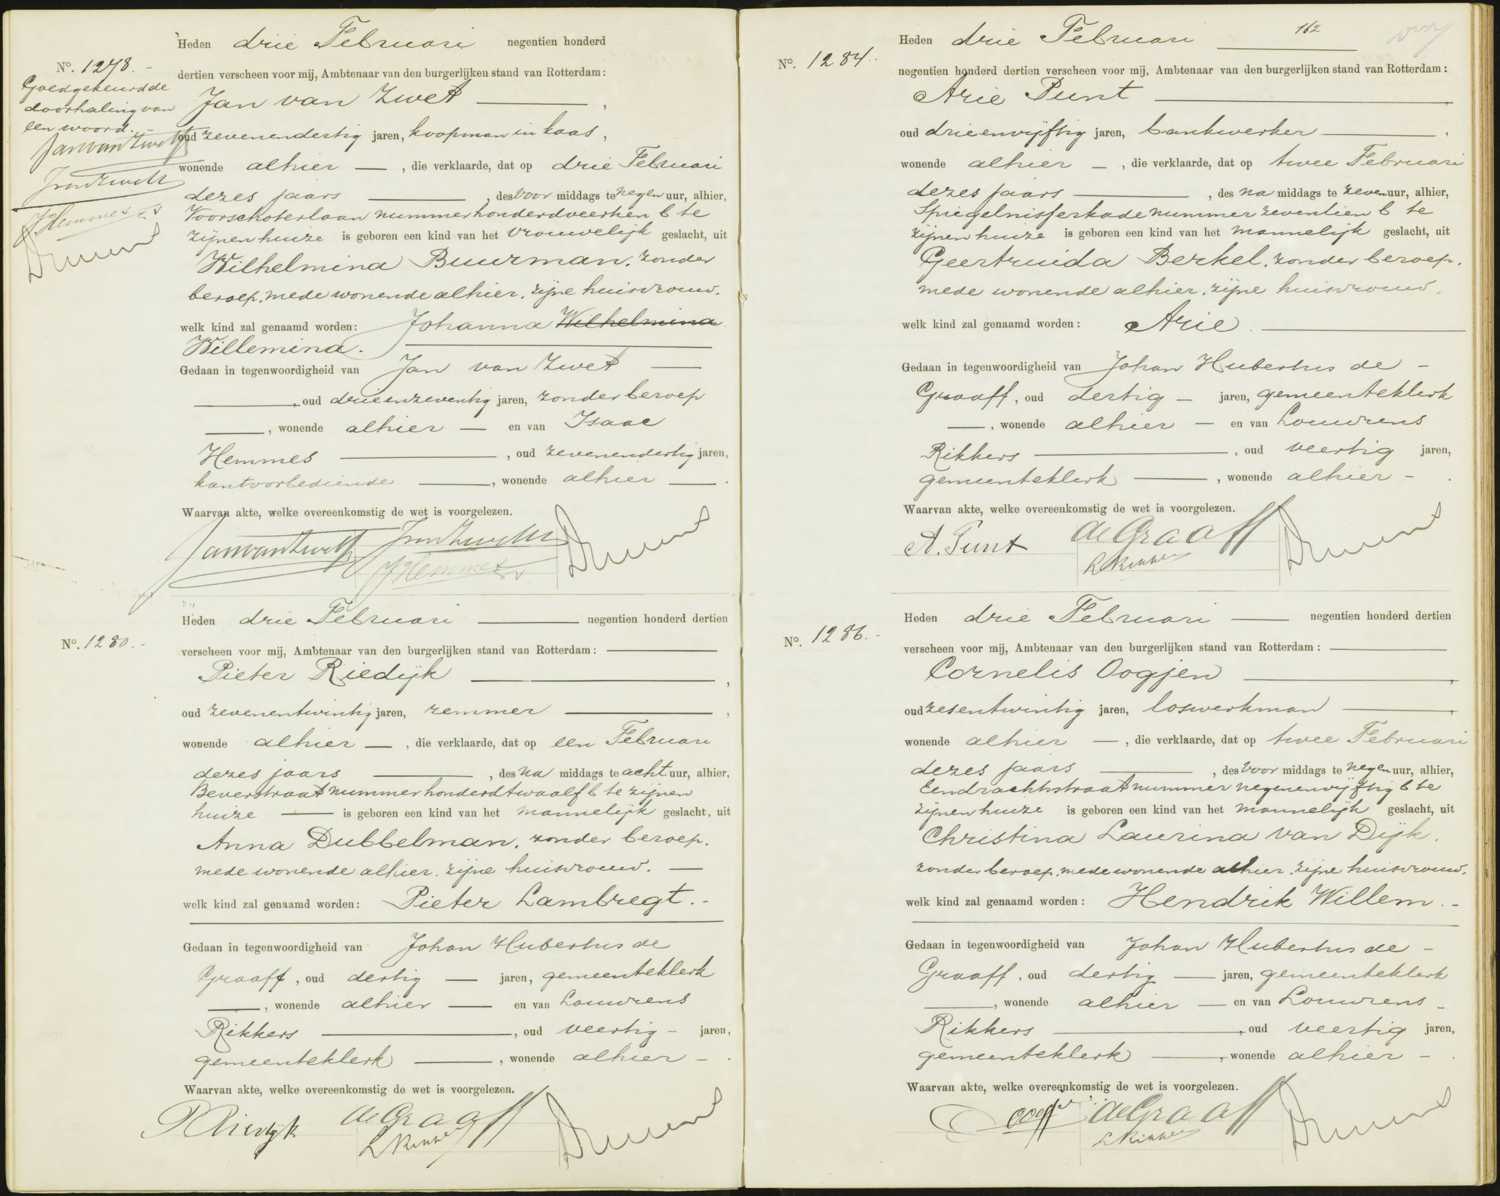 Heden drie Februari negentien honderd
No. 1278.
dertien verscheen voor mij, Ambtenaar van den burgerlijken stand van Rotterdam:
Goedgekeurd de
doorhaling van
een woord.
Jan van Zwet
Jan van Zwet
oud zevenendertig jaren, koopman in kaas,
wonende alhier, die verklaarde, dat op drie Februari
JHemmes
dezes jaars, des voor middags te negen uur, alhier,
Voorschoterlaan nummer honderdveertien b te
zijnen huize is geboren een kind van het vrouwelijk geslacht, uit
Wilhelmina Buurman, zonder
beroep, mede wonende alhier, zijne huisvrouw.
welk kind zal genaamd worden: Johanna Wilhelmina
Willemina.
Gedaan in tegenwoordigheid van Jan van Zwet
, oud drieenzeventig jaren, zonder beroep
, wonende alhier en van Isaac
Hemmes, oud zevenendertig jaren,
kantoorbediende, wonende alhier.
Waarvan akte, welke overeenkomstig de wet is voorgelezen.
Jan van Zwet
JHemmes
Heden drie Februari negentien honderd dertien
No. 1280.
verscheen voor mij, Ambtenaar van den burgerlijken stand van Rotterdam:
Pieter Riedijk,
oud zevenentwintig jaren, remmer,
wonende alhier, die verklaarde, dat op een Februari
dezes jaars, des na middags te acht uur, alhier,
Beverstraat nummer honderdtwaalf b te zijnen
huize is geboren een kind van het mannelijk geslacht, uit
Anna Dubbelman, zonder beroep,
mede wonende alhier, zijne huisvrouw.
welk kind zal genaamd worden: Pieter Lambregt.
Gedaan in tegenwoordigheid van Johan Hubertus de
Graaff, oud dertig jaren, gemeenteklerk
, wonende alhier en van Louwrens
Rikkers, oud veertig jaren,
gemeenteklerk, wonende alhier.
Waarvan akte, welke overeenkomstig de wet is voorgelezen.
P Riedijk deGraaff
LRikkers
162
Heden drie Februari
No. 1284.
negentien honderd dertien verscheen voor mij, Ambtenaar van den burgerlijken stand van Rotterdam:
Arie Punt
oud drieenvijftig jaren, bankwerker,
wonende alhier, die verklaarde, dat op twee Februari
dezes jaars, des na middags te zeven uur, alhier,
Spiegelnisserkade nummer zeventien b te
zijnen huize is geboren een kind van het mannelijk geslacht, uit
Geertruida Berkel, zonder beroep,
mede wonende alhier, zijne huisvrouw.
welk kind zal genaamd worden: Arie.
Gedaan in tegenwoordigheid van Johan Hubertus de
Graaff, oud dertig jaren, gemeenteklerk
, wonende alhier en van Louwrens
Rikkers, oud veertig jaren,
gemeenteklerk, wonende alhier.
Waarvan akte, welke overeenkomstig de wet is voorgelezen.
A. Punt deGraaff
LRikkers
Heden drie Februari negentien honderd dertien
No. 1286.
verscheen voor mij, Ambtenaar van den burgerlijken stand van Rotterdam:
Cornelis Oogjen,
oud zesentwintig jaren, loswerkman,
wonende alhier, die verklaarde, dat op twee Februari
dezes jaars, des voor middags te negen uur, alhier,
Eendrachtstraat nummer negenenvijftig b te
zijnen huize is geboren een kind van het mannelijk geslacht, uit
Christina Laurina van Dijk,
zonder beroep, mede wonende alhier, zijne huisvrouw.
welk kind zal genaamd worden: Hendrik Willem.
Gedaan in tegenwoordigheid van Johan Hubertus de
Graaff, oud dertig jaren, gemeenteklerk
, wonende alhier en van Louwrens
Rikkers, oud veertig jaren,
gemeenteklerk, wonende alhier.
Waarvan akte, welke overeenkomstig de wet is voorgelezen.
deGraaff
LRikkers